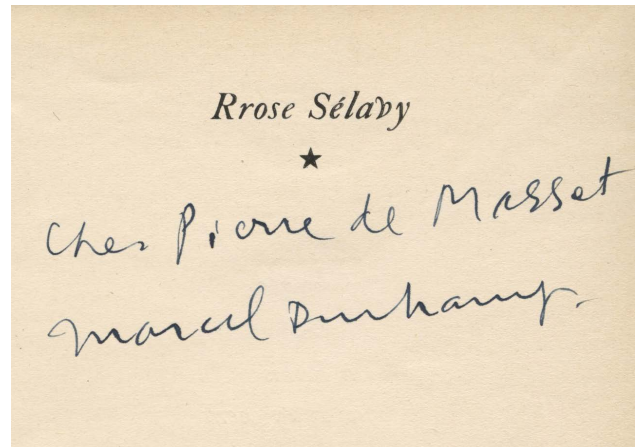 Rrose Sélavy
Cher Pierre de Massot
Marcel Duchamp.